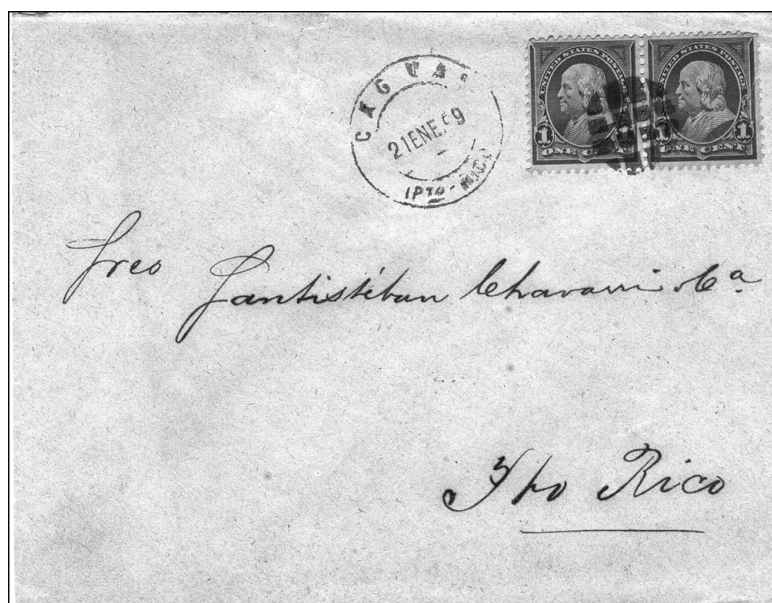 CAGUAS
21 ENE. 99
(PTO-RICO)
UNITED STATES POSTAGE
1 1
ONE CENT
UNITED STATES POSTAGE
1 1
ONE CENT
Sres Santistéban Chavarri & Cª
Pto Rico